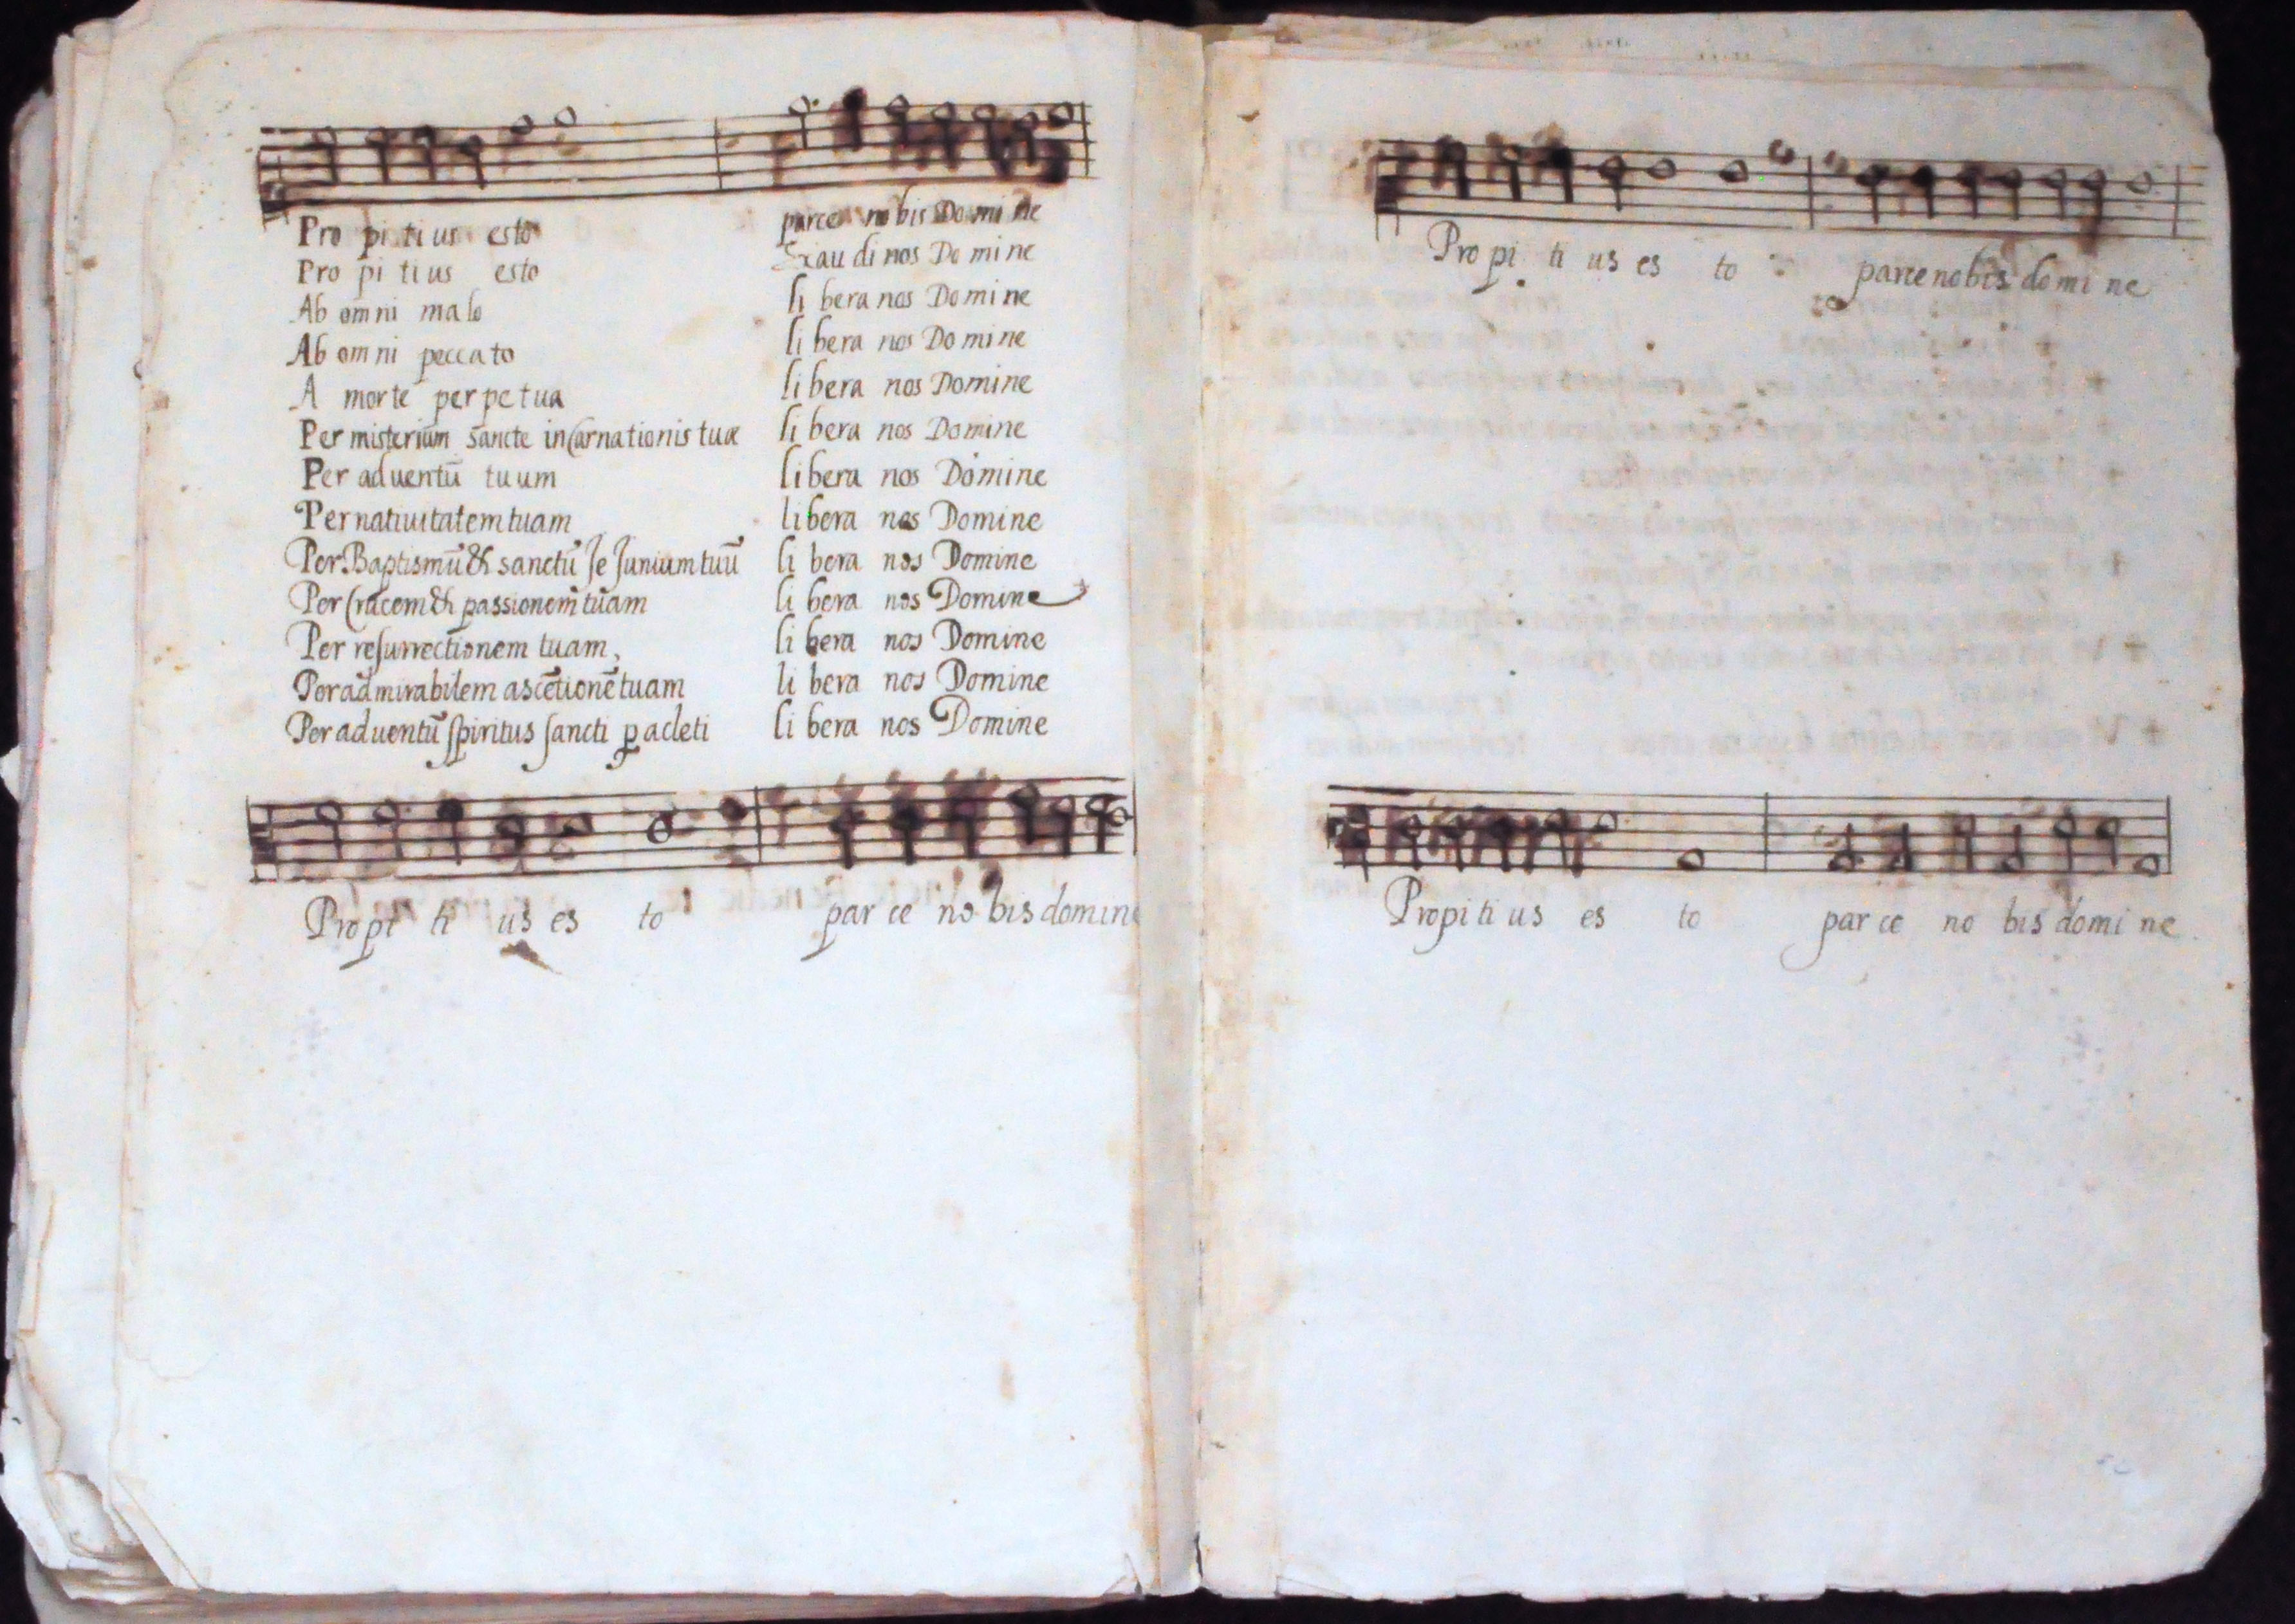 Pro pi ti us esto parce nobis Domine
Pro pi ti us esto Exau di nos Do mine
Ab omni malo li bera nos Domine
Ab omni peccato li bera nos Domine
A morte perpetua li bera nos Domine
Per misteriūm sancte incarnationis tuæ li bera nos Domine
Per aduentū tuum libera nos Domine
Per natiuitatem tuam libera nos Domine
Per Baptismū & sanctū JeJunium tuū li bera nos Domine
Per Crucem & passionem tuam li bera nos Domine
Per resurrectionem tuam, li bera nos Domine
Per admirabilem ascētionē tuam li bera nos Domine
Per aduentū spiritus sancti p acleti li bera nos Domine
Propi ti us es to par ce no bis domine
Pro pi ti us es to parce nobis domi ne
Propi ti us es to par ce no bis domi ne